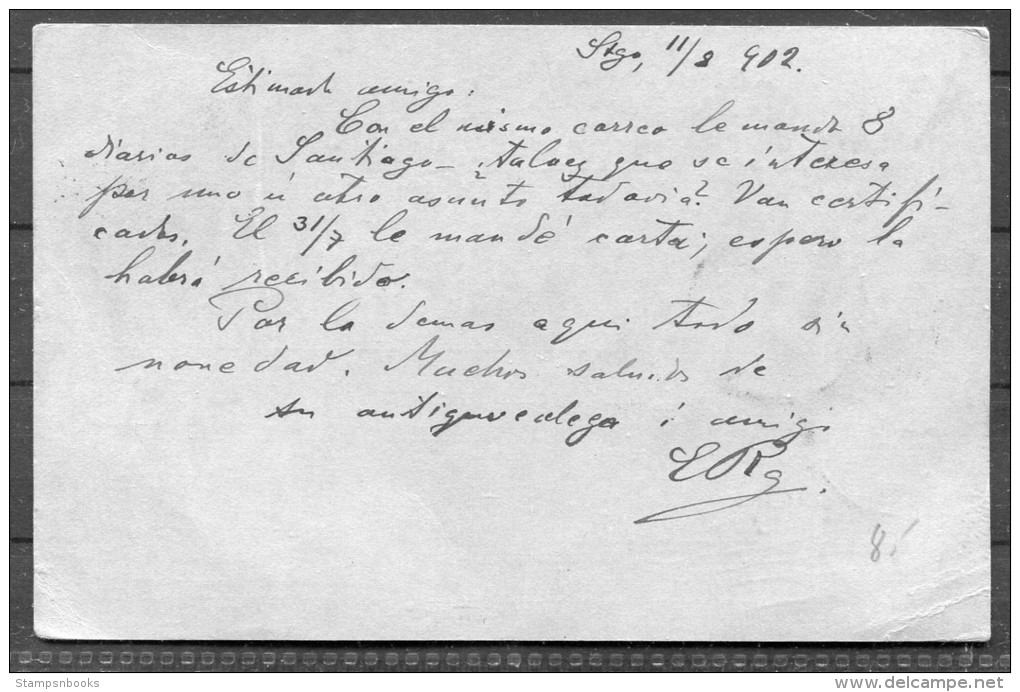 Stgo, 11/8 902.
Estimado amigo:
Con el mismo correo le mando 8
diarios de Santiago - talvez que se interesa
por uno ú otro asunto todavia? Van certifi-
cados. El 31/7 le mandé carta; espero la
habrá recibido.
Por lo demas aqui todo sin
novedad. Muchos saludos de
su antiguo colega i amigo
8
Stampsnbooks
www.delcampe.net